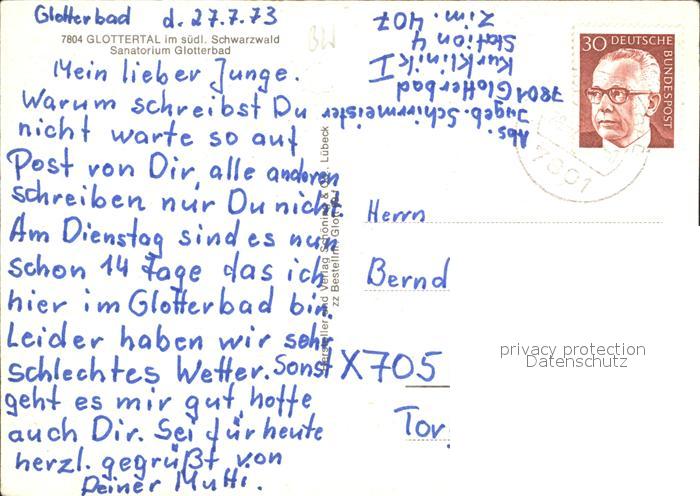 Glotterbad d. 27.7.73
7804 GLOTTERTAL im südl. Schwarzwald
Sanatorium Glotterbad
Mein lieber Junge.
Warum schreibst Du
nicht warte so auf
Post von Dir, alle anderen
schreiben nur Du nicht.
Am Dienstag sind es nun
schon 14 Tage das ich
hier im Glotterbad bin.
Leider haben wir sehr
schlechtes Wetter. Sonst
geht es mir gut, hoffe
auch Dir. Sei für heute
herzl. gegrüßt von
Deiner Mutti.
BW
Hersteller und Verlag Schöning & Co., Lübeck
zz Bestellnr. Glot
Abs. Schirmeister
Ingeb.
7801 Glotterbad
Kurklinik I
Station 4
Zim. 407
30 DEUTSCHE
BUNDESPOST
7801
Herrn
Bernd
X705
Tor
privacy protection
Datenschutz